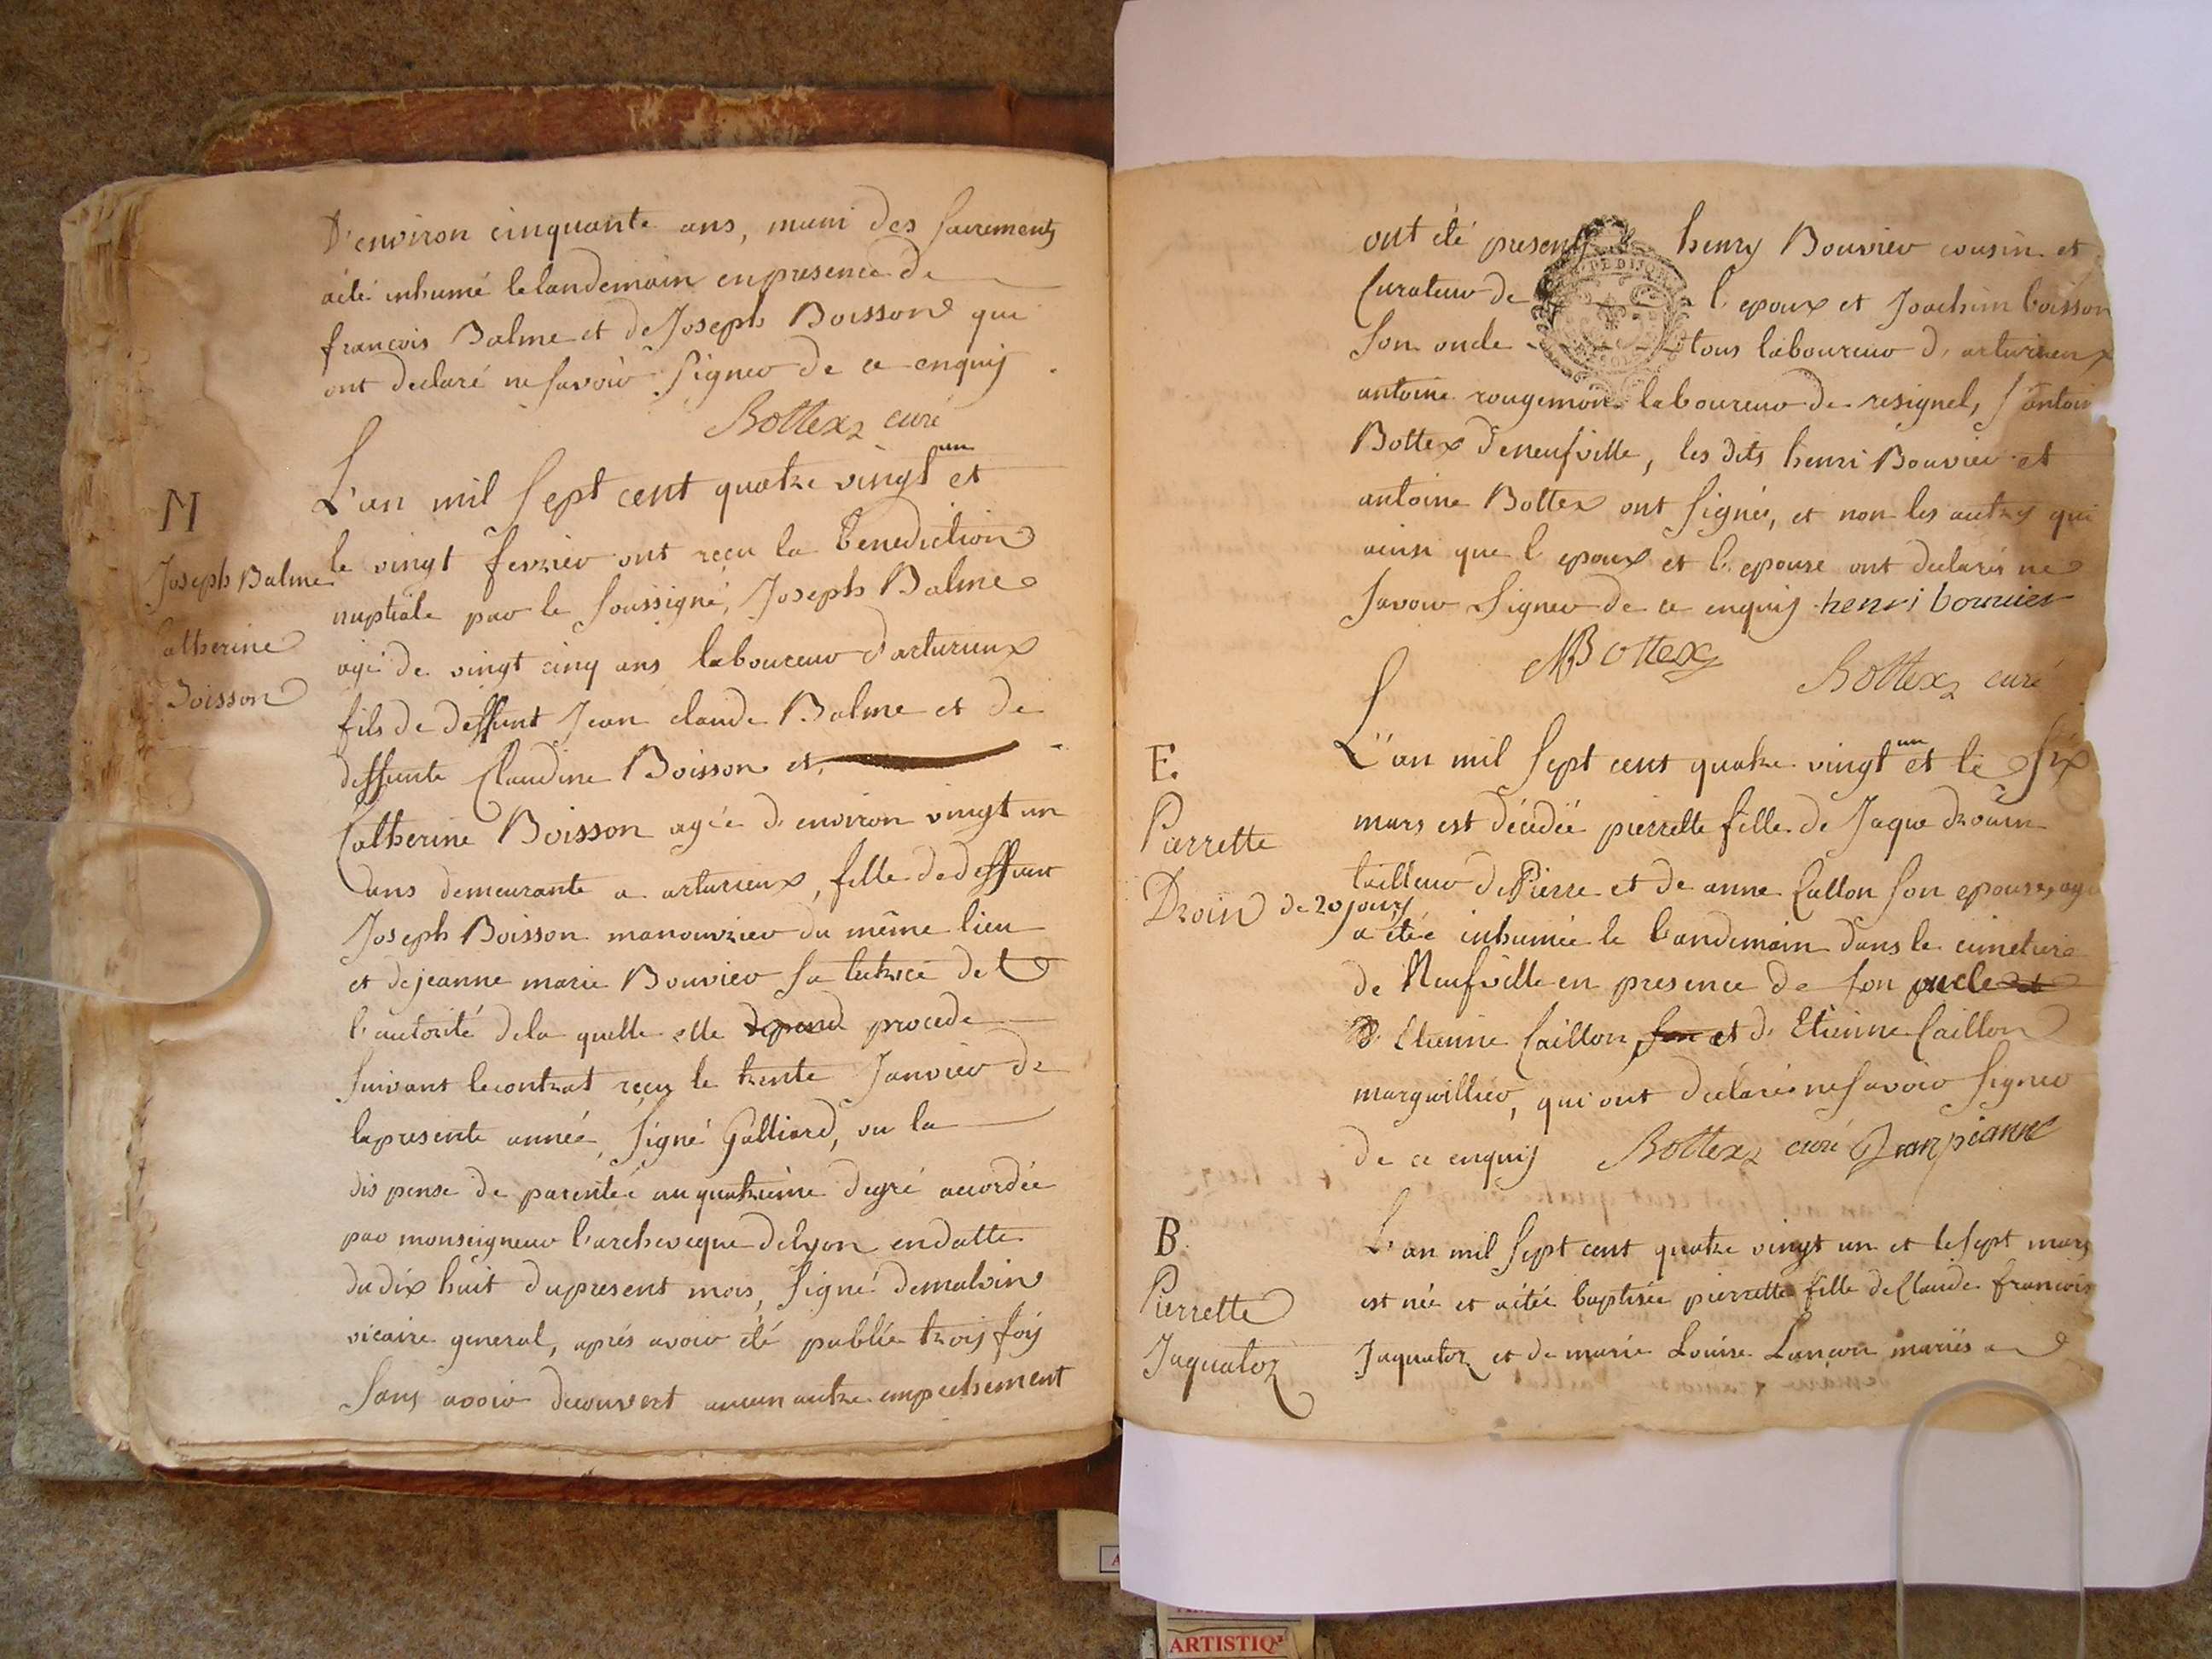 D'environ cinquante ans, muni des sacrements
a été inhumé le landemain en presence de
francois Balme et de Joseph Boisson qui
ont declaré ne savoir signer de ce enquis
Bottex curé
M
Joseph Balme
Catherine
Boisson
L'an mil sept cent quatre vingt un et
le vingt fevrier ont recu la benediction
nuptiale par le soussigné, Joseph Balme
agé de vingt cinq ans laboureur d'arturieux
fils de deffunt Jean claude Balme et de
deffunte Claudine Boisson et
Catherine Boisson agée d'environ vingt un
ans demeurante a arturieux, fille de deffunt
Joseph Boisson manouvrier du même lieu
et de jeanne marie Bouvier sa tutrice de
l'autorité de la quelle elle depend procede
suivant le contrat recu le trente Janvier de
la presente année, signé Galliard, vu la
dispense de parentée au quatrieme degré accordée
par monseigneur l'archeveque de lyon en datte
du dix huit du present mois, signé demalvin
vicaire general, aprés avoir été publié trois fois
sans avoir decouvert aucun autre empechement
ont été presents henry Bouvier cousin et
Curateur de l'epoux et Joachim boisson
son oncle tous laboureur d'arturieux
antoine rougemon laboureur de resignel, s' antoin
Bottex de neufville, les dits henri Bouvier et
antoine Bottex ont signés, et non les autres qui
ainsi que l'epoux et l'epouse ont declarés ne
savoir signer de ce enquis henri bouvier
Bottex
Bottex curé
E.
Pierrette
Droin
L'an mil sept cent quatre vingt un et le six
mars est décédée pierrette fille de Jaque drouin
tailleur de Pierre et de anne Callon son epouse, agée
de 20 jours
a étée inhumée le landemain dans le cimetiere
de Neufville en presence de son oncle et
d' Etienne Caillon son et d'Etienne Caillon
marguillier, qui ont declarés ne savoir signer
de ce enquis Bottex curé
B.
Pierrette
Jaquatoz
L'an mil sept cent quatre vingt un et le sept mars
est née et a étée baptisée pierrette fille de Claude francois
Jaquatoz et de marie Louise Lançon mariés a
ARTISTIQ